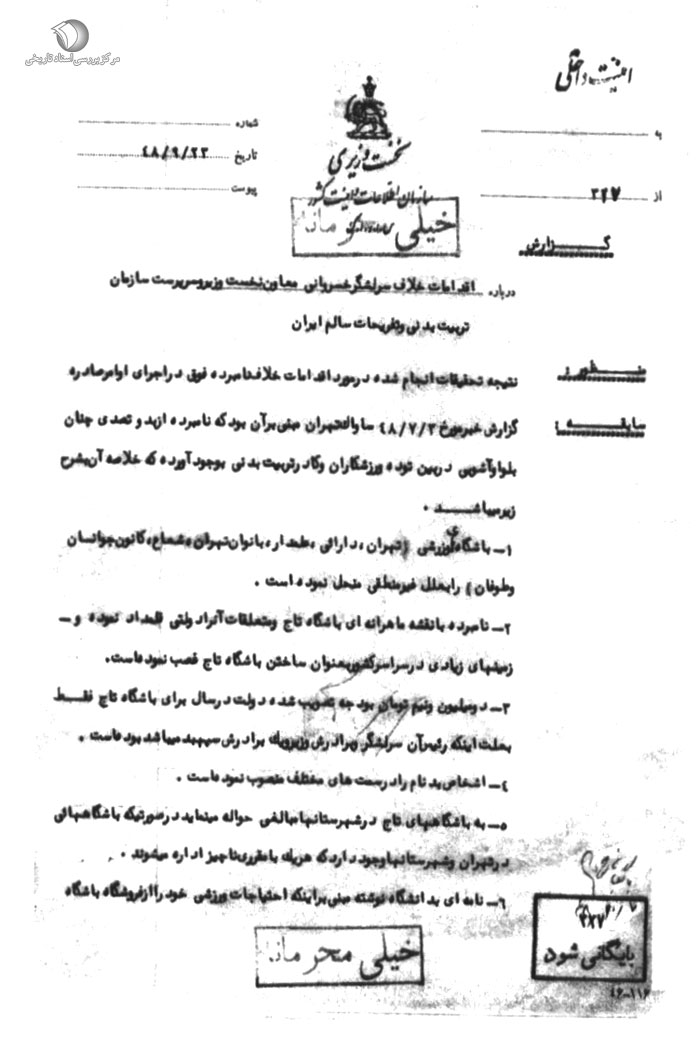 مرکز بررسی اسناد تاریخی
امنیت داخلی
به
شماره
نخست وزیری
تاریخ ۴۸/۹/۲۳
سازمان اطلاعات و امنیت کشور
از ۳۲۷
پیوست
خیلی محرمانه
گزارش
درباره اقدامات خلاف سرلشگر خسروانی معاون نخست وزیر و سرپرست سازمان
تربیت بدنی و تفریحات سالم ایران
منظور : نتیجه تحقیقات انجام شده در مورد اقدامات خلاف نامبرده فوق در اجرای اوامر صادره
سابقه : گزارش خبر مورخ ۴۸/۷/۲ ساواک تهران مبنی بر آن بود که نامبرده از بدو تصدی چنان
بلوا و آشوبی در بین توده ورزشکاران و کادر تربیت بدنی بوجود آورده که خلاصه آن بشرح
زیر میباشد .
۱- باشگاههای ورزشی (تهران ، دارائی ، علمدار ، بانوان تهران ، شعاع ، کانون جوانان
و طوفان) را بعلل غیر منطقی منحل نموده است .
۲- نامبرده با نقشه ماهرانه ای باشگاه تاج و متعلقات آنرا دولتی قلمداد نموده و -
زمینهای زیادی در سراسر کشور بعنوان ساختن باشگاه تاج غصب نموده است.
۳- دو میلیون و نیم تومان بودجه تصویب شده دولت در سال برای باشگاه تاج فقط
بعلت اینکه رئیس آن سرلشگر و برادرش وزیر و یك برادرش سپهبد میباشد بوده است .
۴- اشخاص بد نام را در سمت های مختلف منصوب نموده است .
۵- به باشگاههای تاج در شهرستانها مبالغی حواله مینماید در صورتیکه باشگاههائی
در تهران و شهرستانها وجود دارد که هر یك با مقرری ناچیز اداره میشوند .
۶- نامه ای به دانشگاه نوشته مبنی بر اینکه احتیاجات ورزشی خود را از فروشگاه باشگاه
خیلی محرمانه
بایگانی شود
۴۶-۱۱۶